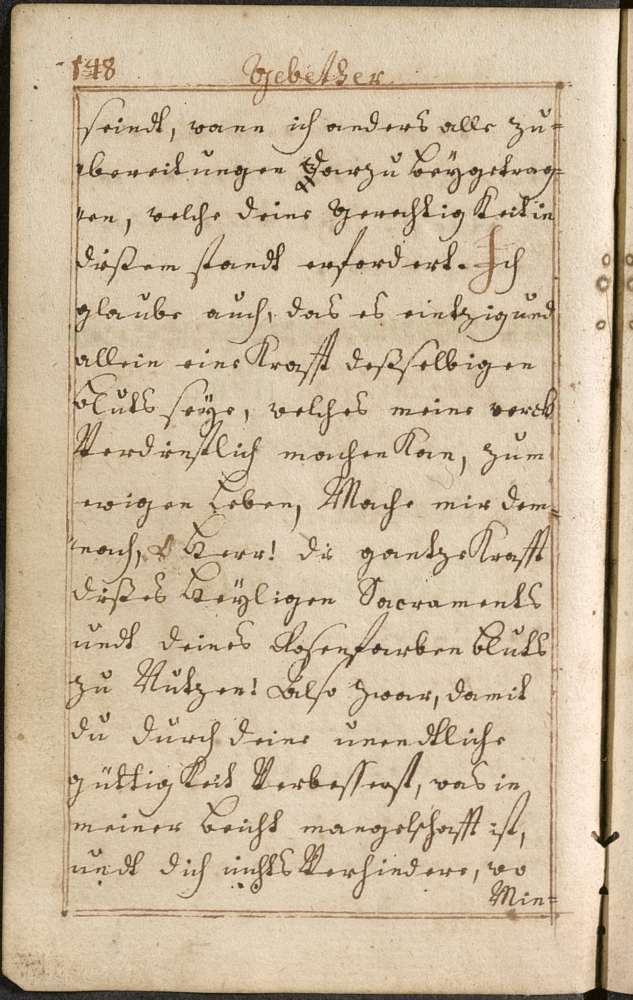 148
Gebether
seindt, wann ich anders alle zu=
bereitungen darzu beygetrag=
en, welche deine gerechtigkeit in
disßem standt erfordert. Ich
glaube auch, das es eintzig und
allein eine Krafft desßselbigen
bluts seye, welches meine werck
Verdinstlich machen Kan, zum
ewigen Leben, Mache mir dem=
nach, O Herr! die gantze Krafft
disßes Heyligen Sacraments
undt deines Rosenfarben bluts
zu Nutzen! Also zwar, damit
du durch deine unendtliche
güttigkeit Verbesserst, was in
meiner beicht mangelhafft ist,
undt dich nichts Verhindere, wo
Min=